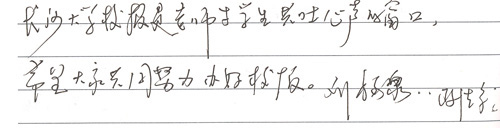 长沙大学校报是老师与学生共吐心声的窗口,
希望大家共同努力办好校报。